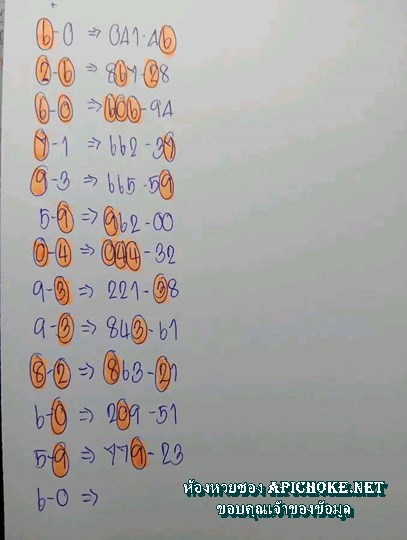 6-0 ⇒ 041-46
2-6 ⇒ 867-28
6-0 ⇒ 606-94
7-1 ⇒ 662-37
9-3 ⇒ 665-59
5-9 ⇒ 962-00
0-4 ⇒ 044-32
9-3 ⇒ 221-38
9-3 ⇒ 843-61
8-2 ⇒ 863-21
6-0 ⇒ 209-51
5-9 ⇒ 779-23
6-0 ⇒
ห้องหวยซอง APICHOKE.NET
ขอบคุณเจ้าของข้อมูล